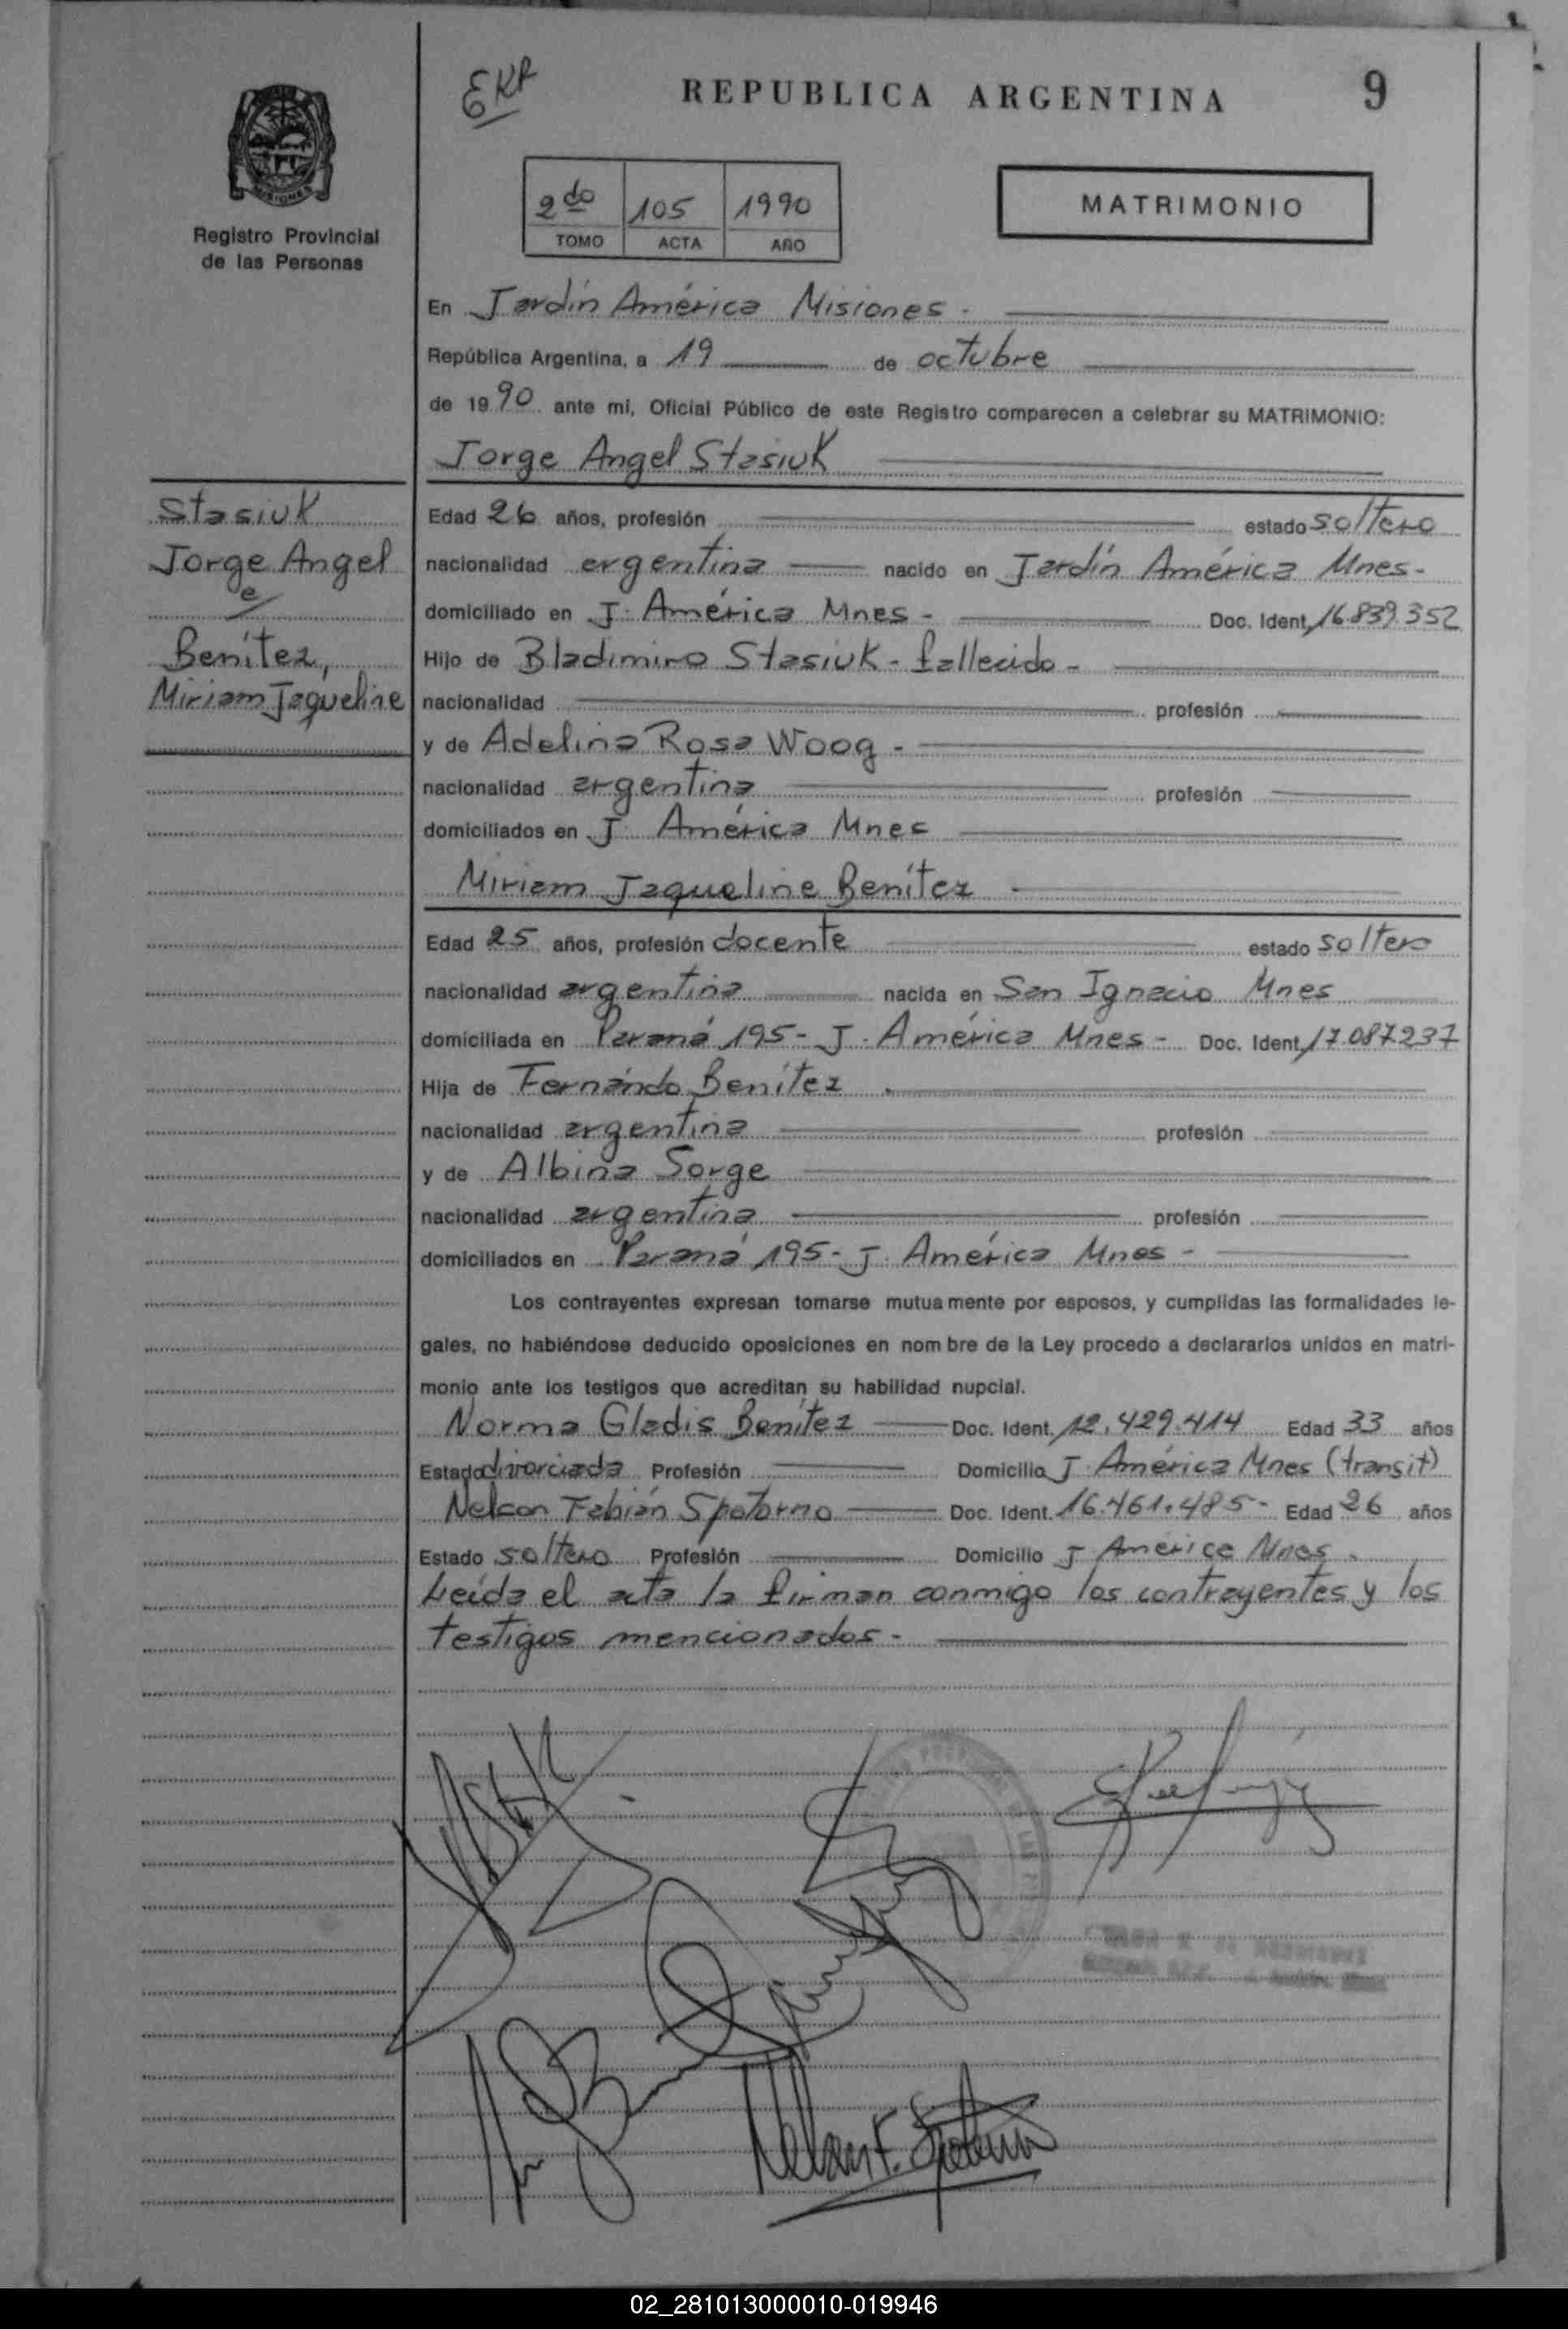 REPUBLICA ARGENTINA
9
MISIONES
Registro Provincial
de las Personas
2do 105 1990
TOMO ACTA AÑO
MATRIMONIO
En Jardín América Misiones -
República Argentina, a 19 de octubre
de 1990 ante mi, Oficial Público de este Registro comparecen a celebrar su MATRIMONIO:
Jorge Angel Stasiuk
Stasiuk
Jorge Angel
e/
Benítez,
Miriam Jaqueline
Edad 26 años, profesión estado soltero
nacionalidad argentina nacido en Jardín América Mnes-
domiciliado en J. América Mnes - Doc. Ident. 16.839.352
Hijo de Bladimiro Stasiuk - fallecido -
nacionalidad profesión
y de Adelina Rosa Woog -
nacionalidad argentina profesión
domiciliados en J. América Mnes
Miriam Jaqueline Benítez -
Edad 25 años, profesión docente estado soltero
nacionalidad argentina nacida en San Ignacio Mnes
domiciliada en Paraná 195- J. América Mnes - Doc. Ident. 17.087.237
Hija de Fernándo Benítez .
nacionalidad argentina profesión
y de Albina Sorge
nacionalidad argentina profesión
domiciliados en Paraná 195- J. América Mnes -
Los contrayentes expresan tomarse mutuamente por esposos, y cumplidas las formalidades le-
gales, no habiéndose deducido oposiciones en nombre de la Ley procedo a declararlos unidos en matri-
monio ante los testigos que acreditan su habilidad nupcial.
Norma Gladis Benítez Doc. Ident. 12.429.414 Edad 33 años
Estado divorciada Profesión Domicilio J. América Mnes (transit)
Nelson Fabián Spotorno Doc. Ident. 16.461.485- Edad 26 años
Estado soltero Profesión Domicilio J América Mnes.
Leída el acta la firman conmigo los contrayentes y los
testigos mencionados -
Nelson F. Spotorno
02_281013000010-019946